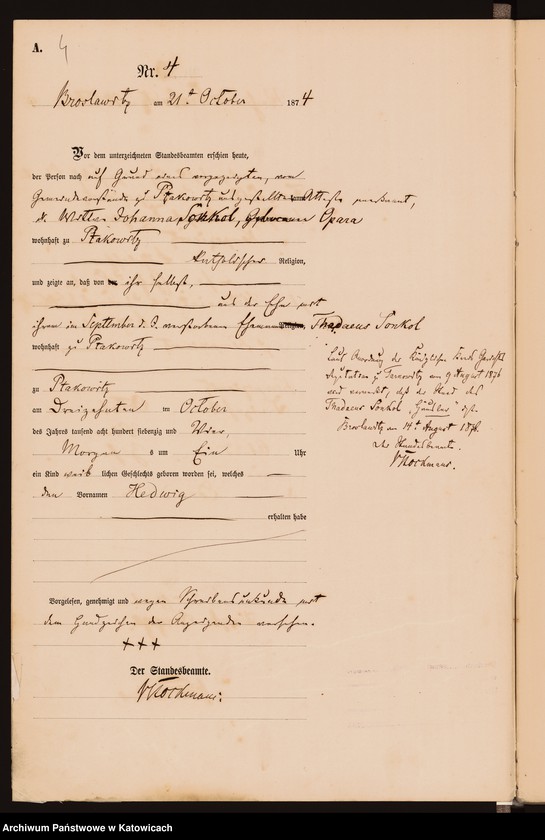 A. 4
Nr. 4
Broslawitz am 21t October 1874
Vor dem unterzeichneten Standesbeamten erschien heute,
der Person nach auf Grund eines vorgezeigten, vom
Gemeindevorstande zu Ptakowitz ausgestellten Attestes anerkannt,
d. Wittwe Johanna Sonkol, geborene Opara
wohnhaft zu Ptakowitz
katholischer Religion,
und zeigte an, daß von ihr selbst,
aus der Ehe mit
ihrem im September d. J. verstorbenen Ehemann Thadaeus Sonkol
wohnhaft zu Ptakowitz
zu Ptakowitz
am Dreizehnten im October
des Jahres tausend acht hundert siebenzig und Vier,
Morgens um Ein Uhr
ein Kind weiblichen Geschlechts geboren worden sei, welches
den Vornamen Hedwig
erhalten habe
Vorgelesen, genehmigt und wegen Schreibensunkunde mit
dem Handzeichen der Anzeigenden versehen.
+++
Der Standesbeamte.
Laut Anordnung der Königlichen Kreis Gerichts
Deputation zu Tarnowitz vom 9 August 1876
wird vermerkt, daß der Stand des
Thadaeus Sonkol Häusler ist.
Broslawitz am 14t August 1876.
Der Standesbeamte.
Archiwum Państwowe w Katowicach